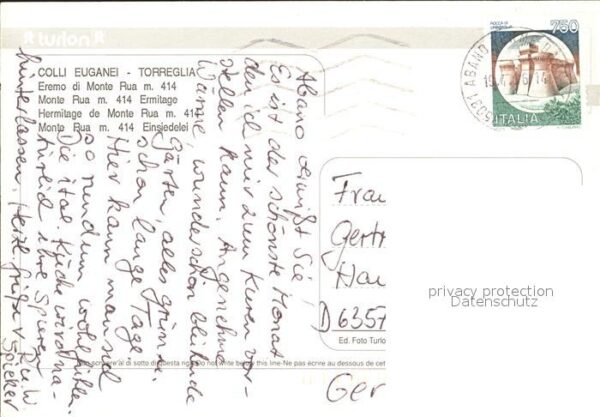 turlon
COLLI EUGANEI - TORREGLIA
Eremo di Monte Rua m. 414
Monte Rua m. 414 Ermitage
Hermitage de Monte Rua m. 414
Monte Rua m. 414 Einsiedelei
ROCCA DI
750
ITALIA
ABANO
Abano grüßt Sie!
Es ist der schönste Monat
den ich mir zum Kuren vor-
stellen kann. Angenehme
Wärme, wunderschön blühende
Gärten, alles grün u.
schon lange Tage.
Hier kann man sich
so rundum wohlfühlen.
Die ital. Küche wird na-
türlich ihre Spuren
hinterlassen. Herzl. Grüße v. R. u. W.
Spieker
Frau
Gertr
Hau
D 6357
Ger
privacy protection
Datenschutz
Ed. Foto Turlo
scrivere al di sotto di questa riga-Do not write below this line-Ne pas écrire au dessous de cet